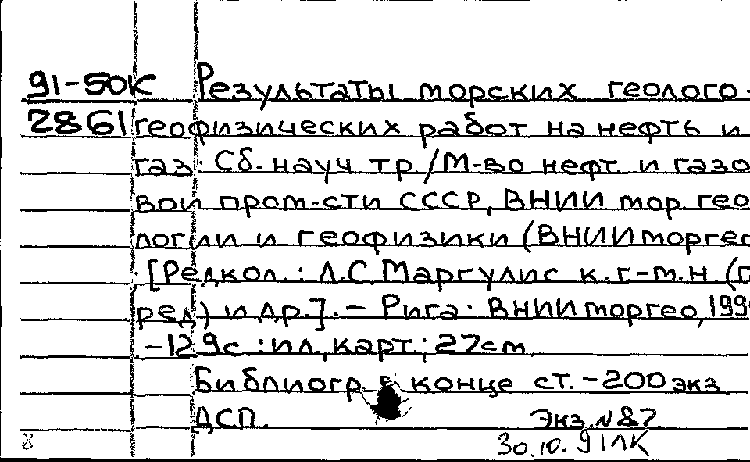 91-50К Результаты морских геолого-
2861 геофизических работ на нефть и
газ: Сб. науч тр / М-во нефт. и газо
вой пром-сти СССР, ВНИИ мор. гео
логии и геофизики (ВНИИморгео
[Редкол.: Л.С. Маргулис к.г-м.н (г
ред) и др.]. - Рига: ВНИИморгео, 199
-129с : ил., карт.; 27см
Библиогр в конце ст. - 200 экз
ДСП. Экз. №87
30.10.91 ЛК